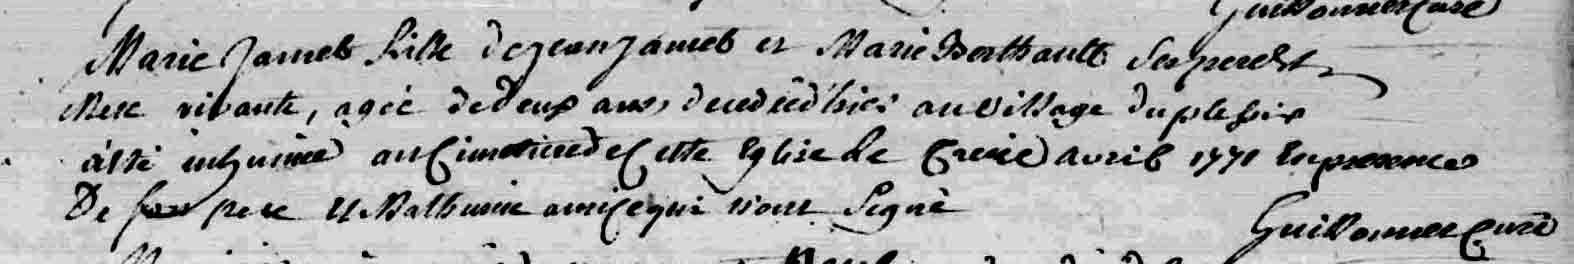 Guillonner Curé
Marie Jamet fille de jean Jamet et Marie Berthault Ses pere Et
Mere vivante, agée de deux ans decedéé hier au village du plessix
a été inhumée au Cimetiere de Cette Eglise le treize avril 1771 En presence
De son pere Et Mathurin qui n'ont Signé
Guillonner Curé